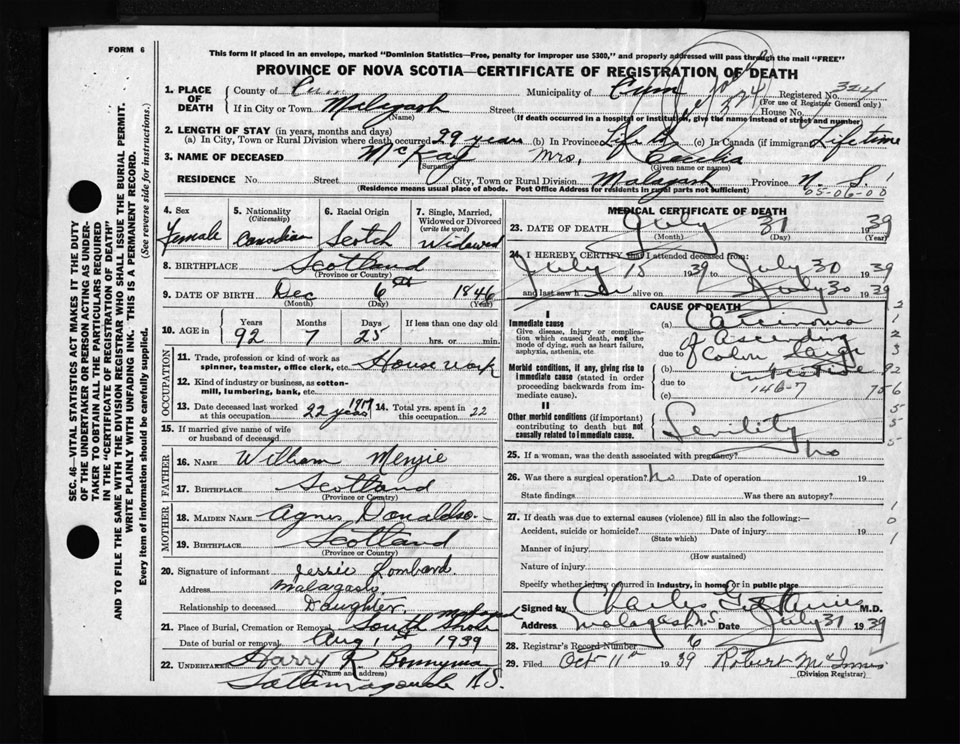 FORM 6
This form if placed in an envelope, marked "Dominion Statistics—Free, penalty for improper use $300," and properly addressed will pass through the mail "FREE"
PROVINCE OF NOVA SCOTIA—CERTIFICATE OF REGISTRATION OF DEATH
1. PLACE OF DEATH
County of Municipality of Cum Registered No. 324
(For use of Registrar General only)
If in City or Town Malagash Street House No.
(Name) (If death occurred in a hospital or institution, give the name instead of street and number)
2. LENGTH OF STAY (in years, months and days)
(a) In City, Town or Rural Division where death occurred 29 years (b) In Province (c) In Canada (if immigrant) Lifetime
3. NAME OF DECEASED McKay Mrs, Cecelia
(Surname) (Given name or names)
RESIDENCE No. Street City, Town or Rural Division Malagash Province N. S.
(Residence means usual place of abode. Post Office Address for residents in rural parts not sufficient) 05-06-00
4. Sex Female
5. Nationality (Citizenship) Canadian
6. Racial Origin Scotch
7. Single, Married, Widowed or Divorced (write the word) Widowed
8. BIRTHPLACE Scotland
(Province or Country)
9. DATE OF BIRTH Dec 6th 1846
(Month) (Day) (Year)
10. AGE in Years Months Days If less than one day old
92 7 25 hrs. or min.
OCCUPATION
11. Trade, profession or kind of work as spinner, teamster, office clerk, etc. House work
12. Kind of industry or business, as cotton-mill, lumbering, bank, etc.
13. Date deceased last worked at this occupation 22 years 1917 14. Total yrs. spent in this occupation 22
15. If married give name of wife or husband of deceased
FATHER
16. NAME William Menzie
17. BIRTHPLACE Scotland
(Province or Country)
MOTHER
18. MAIDEN NAME Agnes
19. BIRTHPLACE Scotland
(Province or Country)
20. Signature of informant Jessie Lombard.
Address Malagash.
Relationship to deceased Daughter,
21. Place of Burial, Cremation or Removal South Shore Malagash
Date of burial or removal Aug 1939
22. UNDERTAKER Harry R. Bonnyman
(Name and address)
Tattamagouche N.S.
MEDICAL CERTIFICATE OF DEATH
23. DATE OF DEATH July 31 1939
(Month) (Day) (Year)
24. I HEREBY CERTIFY that I attended deceased from:
July 15 1939 to July 30 1939
and last saw h er alive on July 30 1939
CAUSE OF DEATH
I
Immediate cause
Give disease, injury or complication which caused death, not the mode of dying, such as heart failure, asphyxia, asthenia, etc.
(a) Carcinoma of Ascending
due to Colon large
Morbid conditions, if any, giving rise to immediate cause (stated in order proceeding backwards from immediate cause).
(b) intestine
due to 146-7
(c)
II
Other morbid conditions (if important) contributing to death but not causally related to immediate cause.
Senility
25. If a woman, was the death associated with pregnancy? no
26. Was there a surgical operation? no Date of operation 19
State findings Was there an autopsy?
27. If death was due to external causes (violence) fill in also the following:—
Accident, suicide or homicide? Date of injury 19
(State which)
Manner of injury
(How sustained)
Nature of injury
Specify whether injury occurred in industry, in home, or in public place
Signed by Charles M.D.
Address Malagash N.S Date July 31 1939
28. Registrar's Record Number 6
29. Filed Oct 11th 1939 Robert McInnis
(Division Registrar)
SEC. 46—VITAL STATISTICS ACT MAKES IT THE DUTY
OF THE UNDERTAKER OR PERSON ACTING AS UNDER-
TAKER TO OBTAIN ALL THE PARTICULARS REQUIRED
IN THE "CERTIFICATE OF REGISTRATION OF DEATH"
AND TO FILE THE SAME WITH THE DIVISION REGISTRAR WHO SHALL ISSUE THE BURIAL PERMIT.
WRITE PLAINLY WITH UNFADING INK. THIS IS A PERMANENT RECORD.
Every item of information should be carefully supplied. (See reverse side for instructions.)